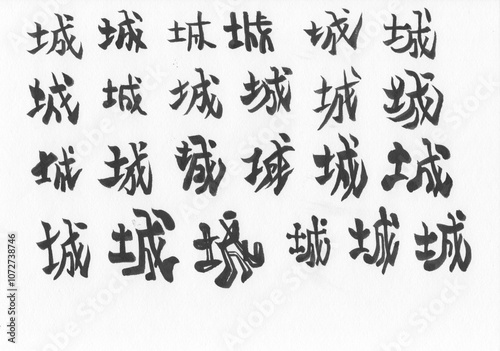 城 城 城 城 城 城
城 城 城 城 城 城
城 城 城 城 城 城
城 城 城 城 城 城
Adobe Stock | #1072738746